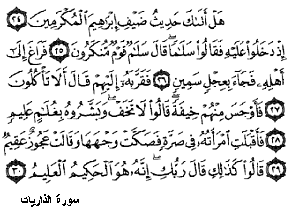 هَلْ أَتَىٰكَ حَدِيثُ ضَيْفِ إِبْرَٰهِيمَ الْمُكْرَمِينَ ٢٤
إِذْ دَخَلُوا عَلَيْهِ فَقَالُوا سَلَٰمًا قَالَ سَلَٰمٌ قَوْمٌ مُّنكَرُونَ ٢٥ فَرَاغَ إِلَىٰ
أَهْلِهِ فَجَآءَ بِعِجْلٍ سَمِينٍ ٢٦ فَقَرَّبَهُ إِلَيْهِمْ قَالَ أَلَا تَأْكُلُونَ
٢٧ فَأَوْجَسَ مِنْهُمْ خِيفَةً قَالُوا لَا تَخَفْ وَبَشَّرُوهُ بِغُلَٰمٍ عَلِيمٍ
٢٨ فَأَقْبَلَتِ امْرَأَتُهُ فِي صَرَّةٍ فَصَكَّتْ وَجْهَهَا وَقَالَتْ عَجُوزٌ عَقِيمٌ
٢٩ قَالُوا كَذَٰلِكِ قَالَ رَبُّكِ إِنَّهُ هُوَ الْحَكِيمُ الْعَلِيمُ ٣٠
سورة الذاريات